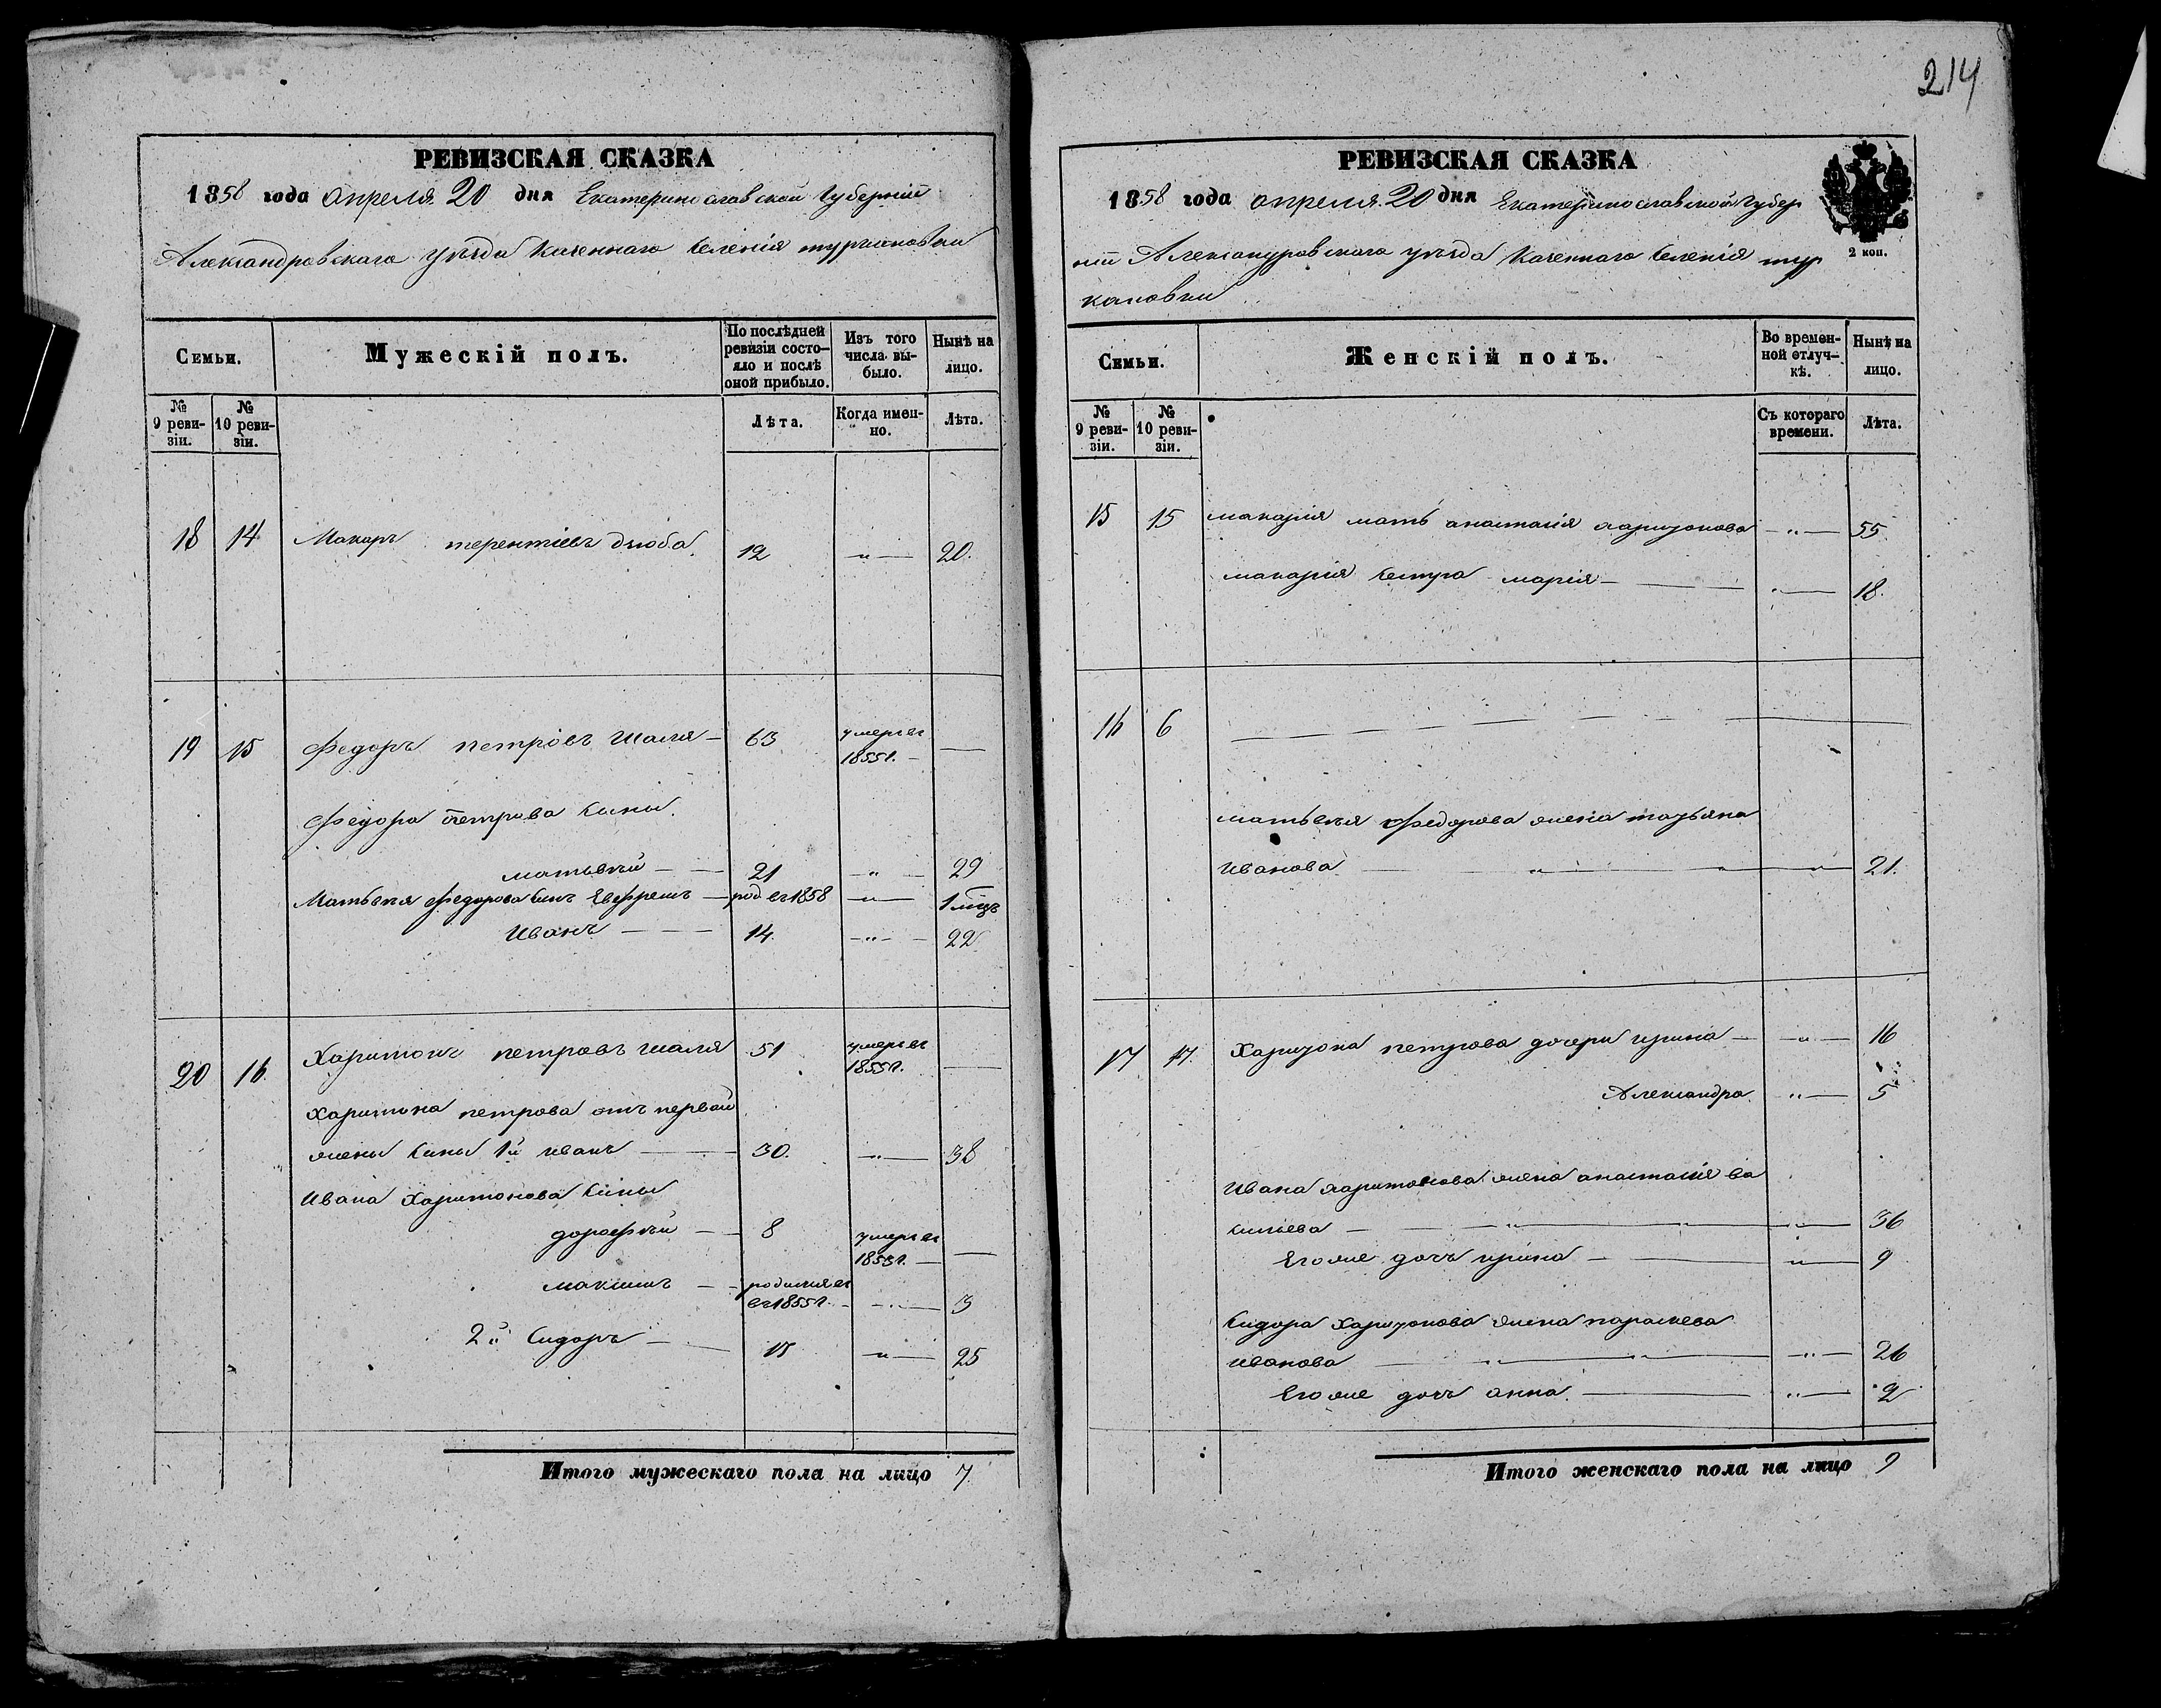 214
РЕВИЗСКАЯ СКАЗКА
1858 года апреля 20 дня Екатеринославской Губерніи
Александровскаго уѣзда Казеннаго селенія туркановки
Семьи.
Мужескій полъ.
По послѣдней ревизіи состояло и послѣ оной прибыло.
Изъ того числа выбыло.
Нынѣ на лицо.
№ 9 ревизіи.
№ 10 ревизіи.
Лѣта.
Когда именно.
Лѣта.
18 14 Макаръ терентіевъ дзюба 12 — " — 20.
19 15 Федоръ петровъ шаля — 63 умеръ въ 1855 г. —
Федора петрова сины
матвѣй — 21 — " — 29
Матвѣя Федорова синъ Евфремъ — род въ 1858 — " — 1 мцъ
Иванъ — 14. — " — 22
20 16 Харитонъ петровъ шаля 51 умеръ въ 1855 г. —
Харитона петрова отъ первой
жены сины 1й иванъ — 30. — " — 38
Ивана Харитонова сины
дорофѣй — 8 умеръ въ 1853 г. —
максимъ — родился въ 1855 г. — " — 3
2й Сидоръ — 15 — " — 25
Итого мужескаго пола на лицо 7.
РЕВИЗСКАЯ СКАЗКА
1858 года апреля 20 дня Екатеринославской Губер
ніи Александровскаго уѣзда Казеннаго селенія тур
кановки
2 коп.
Семьи.
Женскій полъ.
Во временной отлучкѣ.
Нынѣ на лицо.
№ 9 ревизіи.
№ 10 ревизіи.
Съ котораго времени.
Лѣта.
15 15 макарія мать анастасія харитонова — " — 55
макарія сестра марія — " — 18.
16 6
матвѣя Федорова жена татьяна
Иванова — " — 21.
17 17. Харитона петрова дочери ирина — " — 16
Александра " — 5
Ивана харитонова жена анастасія ва
сильева — " — 36
Его же дочь ирина — " — 9
Сидора Харитонова жена параскева
иванова — " — 26
Его же дочь анна — " — 2
Итого женскаго пола на лицо 9